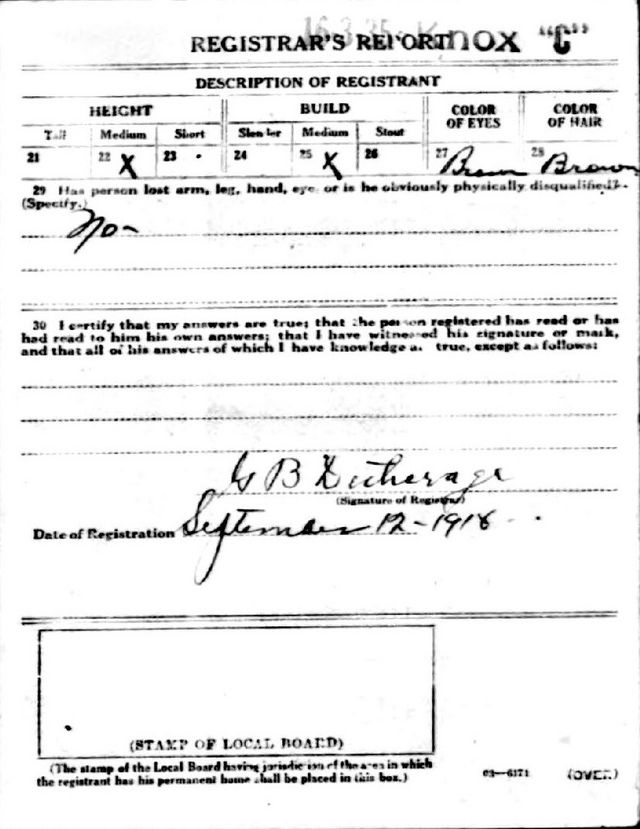 16-3-35- Knox "C"
REGISTRAR'S REPORT
DESCRIPTION OF REGISTRANT
HEIGHT BUILD COLOR OF EYES COLOR OF HAIR
Tall Medium Short Slender Medium Stout
21 22 X 23 24 25 X 26 27 Brown 28 Brown
29 Has person lost arm, leg, hand, eye, or is he obviously physically disqualified?
(Specify.)
No-
30 I certify that my answers are true; that the person registered has read or has
had read to him his own answers; that I have witnessed his signature or mark,
and that all of his answers of which I have knowledge are true, except as follows:
G B
(Signature of Registrar)
Date of Registration September 12-1918
(STAMP OF LOCAL BOARD)
(The stamp of the Local Board having jurisdiction of the area in which
the registrant has his permanent home shall be placed in this box.)
03-6171 (OVER)